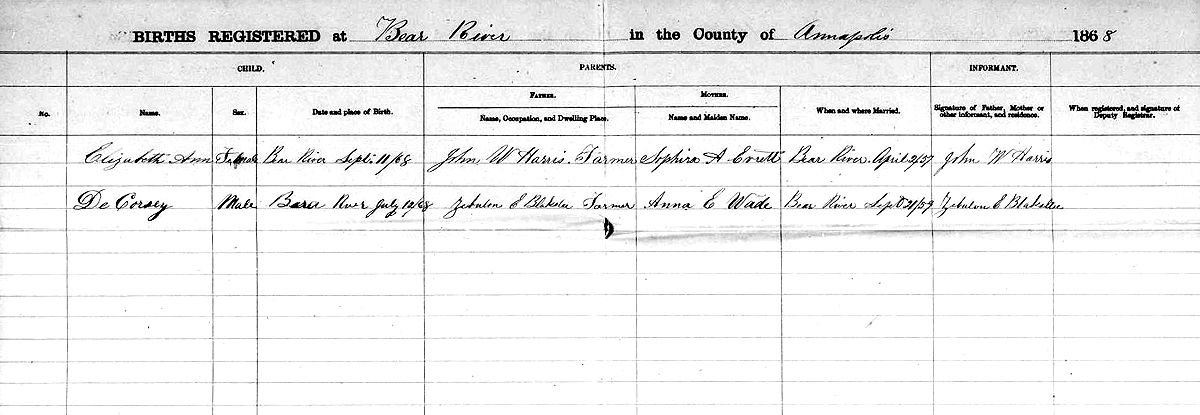 BIRTHS REGISTERED at Bear River in the County of Annapolis 1868
CHILD. PARENTS. INFORMANT.
No. Name. Sex. Date and place of Birth. FATHER. Name, Occupation, and Dwelling Place. MOTHER. Name and Maiden Name. When and where Married. Signature of Father, Mother or other informant, and residence. When registered, and signature of Deputy Registrar.
Elizabeth Ann Female Bear River Sept 11/68 John W Harris. Farmer Sophira A Evrett Bear River. April 2/57 John W Harris
De Corsey Male River July 12/68 Zebulon E Farmer Anna E Wade Bear River Sept 21/59 Zebulon E Blakslee